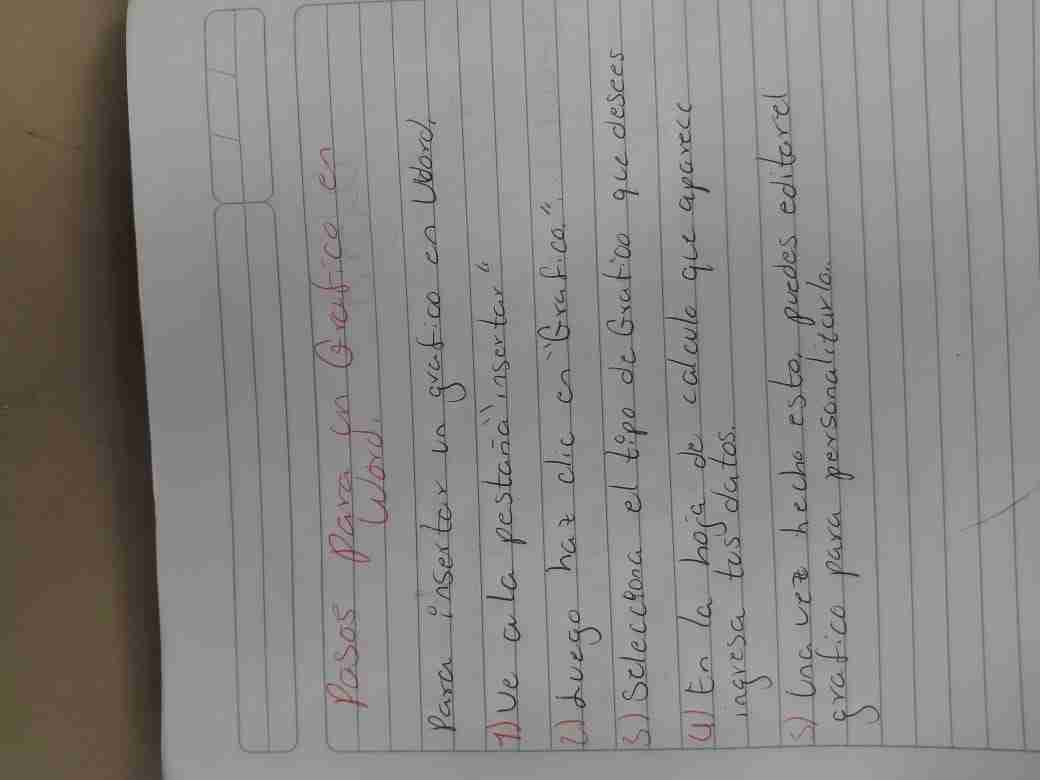 Pasos Para en Grafico en
Word.
Para insertar un grafico en Word.
1) Ve a la pestaña "insertar"
2) Luego haz clic en "Grafico".
3) Selecciona el tipo de Grafico que desees
4) En la hoja de calculo que aparece
ingresa tus datos.
5) Una vez hecho esto, puedes editar el
grafico para personalizarla.